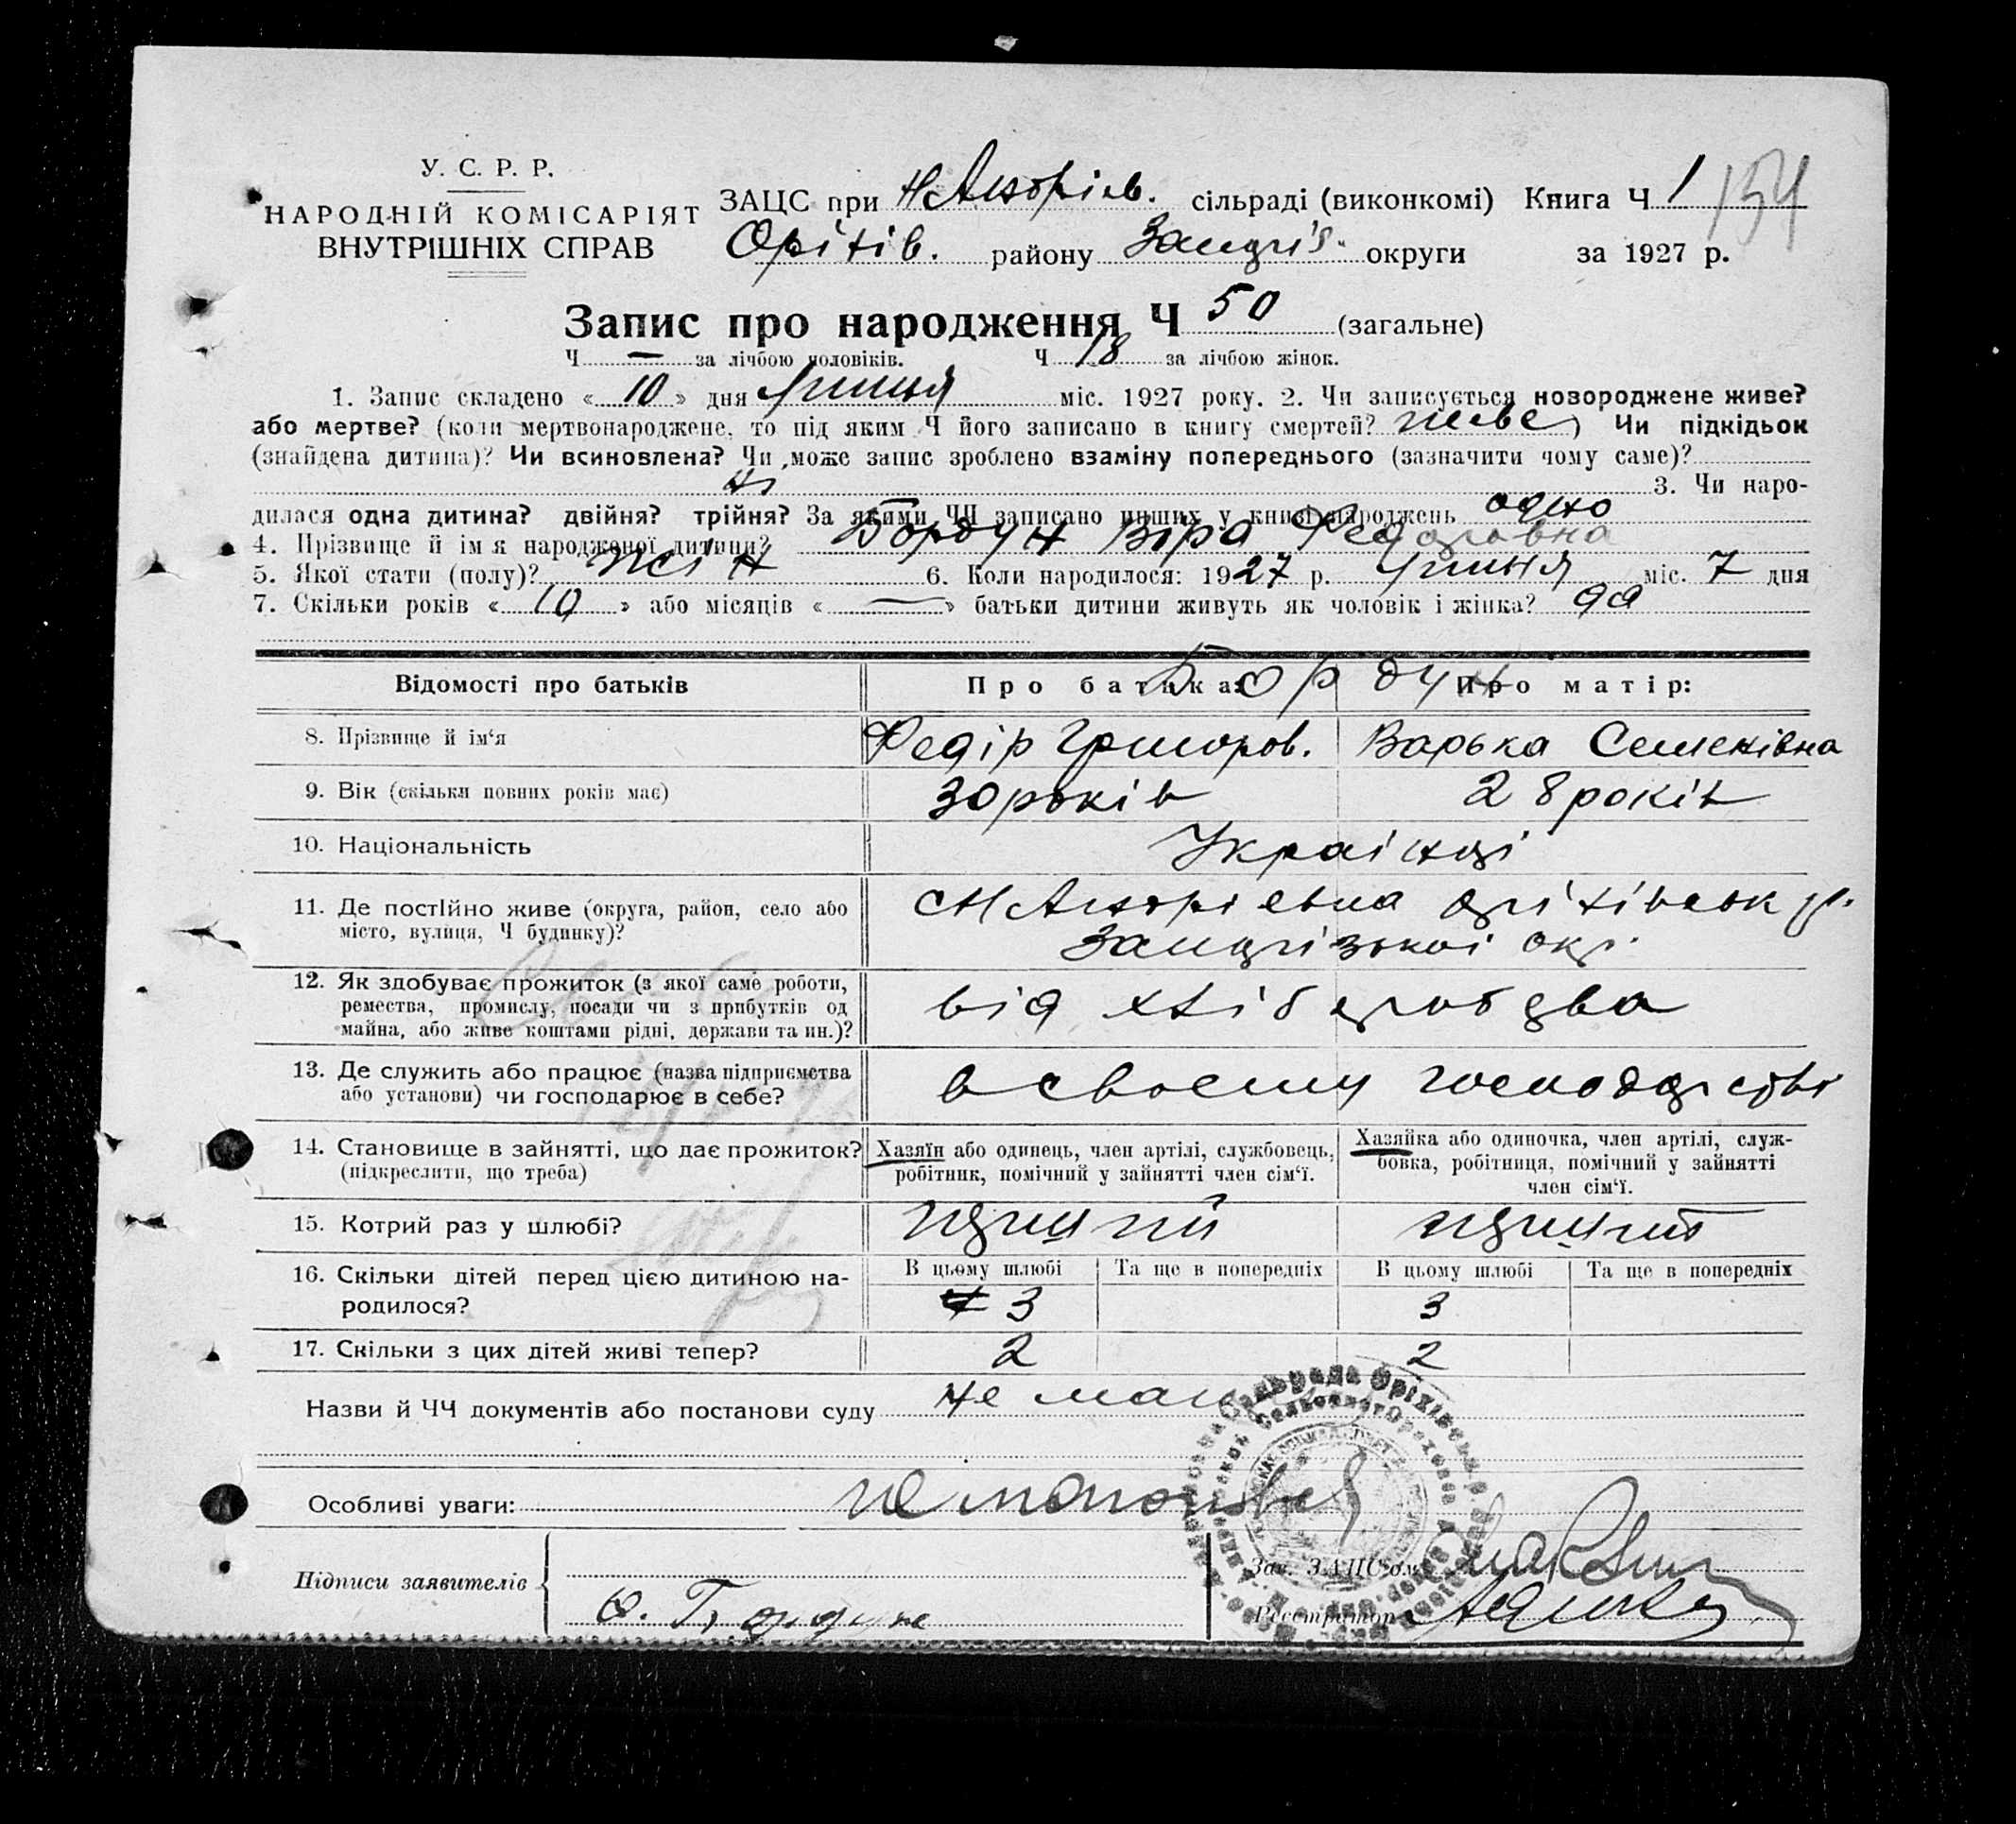 У. С. Р. Р.
НАРОДНІЙ КОМІСАРІЯТ
ВНУТРІШНІХ СПРАВ
ЗАЦС при сільраді (виконкомі) Книга Ч 1 154
Оріхів. району округи за 1927 р.
Запис про народження Ч 50 (загальне)
Ч — за лічбою чоловіків. Ч 18 за лічбою жінок.
1. Запис складено « 10 » дня Липня міс. 1927 року. 2. Чи записується новороджене живе?
або мертве? (коли мертвонароджене, то під яким Ч його записано в книгу смертей? живе) Чи підкідьок
(знайдена дитина)? Чи всиновлена? Чи може запис зроблено взаміну попереднього (зазначити чому саме)?
ні 3. Чи наро-
дилася одна дитина? двійня? трійня? За якими ЧЧ записано инших у книзі народжень одно
4. Прізвище й ім'я народженої дитини? Бордун Віра Федоровна
5. Якої стати (полу)? жін 6. Коли народилося: 1927 р. Липня міс. 7 дня
7. Скільки років « 10 » або місяців « — » батьки дитини живуть як чоловік і жінка? да
Відомості про батьків Про батька: Про матір:
Бордун
8. Прізвище й ім'я Федір Григоров. Варька Семенівна
9. Вік (скільки повних років має) 30 років 28 років
10. Національність Українці
11. Де постійно живе (округа, район, село або
місто, вулиця, Ч будинку)?
Запорізької окр.
12. Як здобуває прожиток (з якої саме роботи,
ремества, промислу, посади чи з прибутків од
майна, або живе коштами рідні, держави та ин.)?
від хліборобства
13. Де служить або працює (назва підприємства
або установи) чи господарює в себе?
в своєму господарстві
14. Становище в зайнятті, що дає прожиток?
(підкреслити, що треба)
Хазяїн або одинець, член артілі, службовець,
робітник, помічний у зайнятті член сім'ї.
Хазяйка або одиночка, член артілі, служ-
бовка, робітниця, помічний у зайнятті
член сім'ї.
15. Котрий раз у шлюбі? перший перший
16. Скільки дітей перед цією дитиною на-
родилося?
В цьому шлюбі Та ще в попередніх В цьому шлюбі Та ще в попередніх
3 3
17. Скільки з цих дітей живі тепер? 2 2
Назви й ЧЧ документів або постанови суду не має
Особливі уваги:
Підписи заявителів
Ф. Бордун
Зав. ЗАЦС'ом
Реєстратор